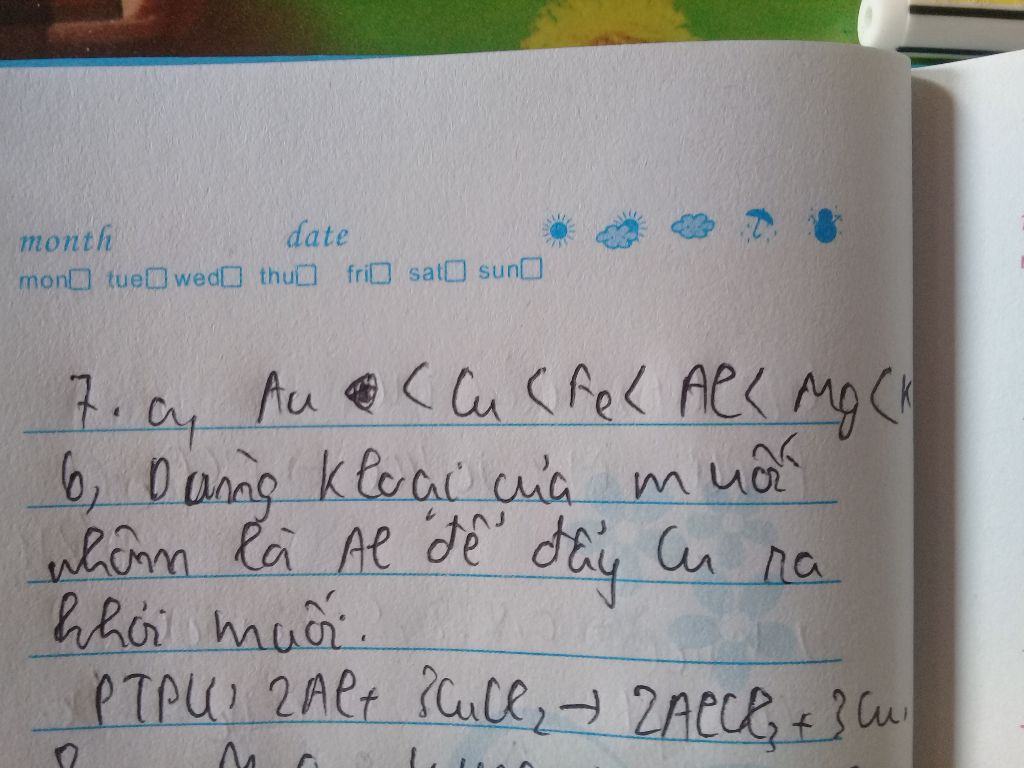 month date
mon tue wed thu fri sat sun
7. a, Au < Cu < Fe < Al < Mg < K
b, Dùng kloại của muối
nhôm là Al để đẩy Cu ra
khỏi muối.
PTPU: 2Al + 3CuCl2 → 2AlCl3 + 3Cu.